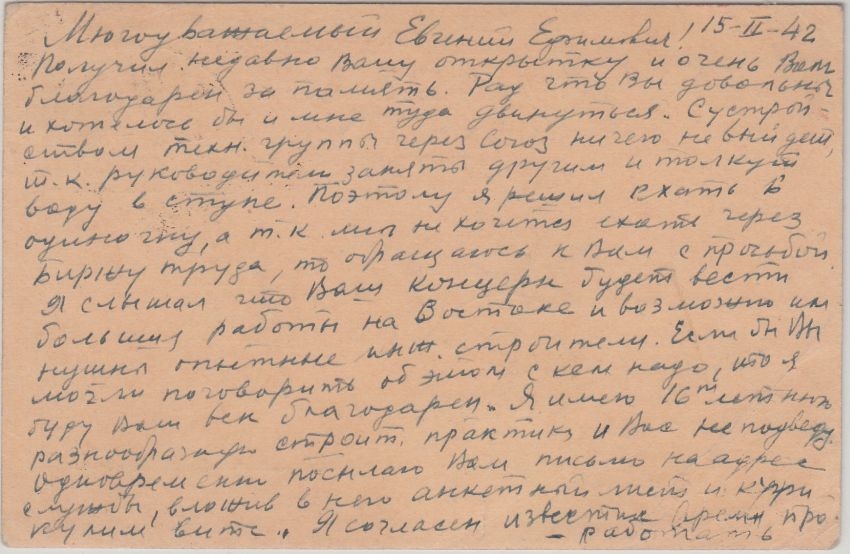 Многоуважаемый Евгений Ефимович! 15-II-42
Получил недавно Вашу открытку и очень Вам
благодарен за память. Рад что Вы довольны
и хотелось бы и мне туда двинуться. С устрой-
ством техн. группы через Союз ничего не выйдет,
т.к. руководители заняты другим и толкут
воду в ступе. Поэтому я решил ехать в
одиночку, а т.к. мне не хочется ехать через
Биржу труда, то обращаюсь к Вам с просьбой.
Я слышал что Ваш концерн будет вести
большия работы на Востоке и возможно им
нужны опытные инж. строители. Если бы Вы
могли поговорить об этом с кем надо, то я
буду Вам век благодарен. Я имею 16ти летнюю
разнообразную строит. практику и Вас не подведу.
Одновременно посылаю Вам письмо на адрес
службы, вложив в него анкетный лист и курри
кулим вите. Я согласен известное время про
- работать